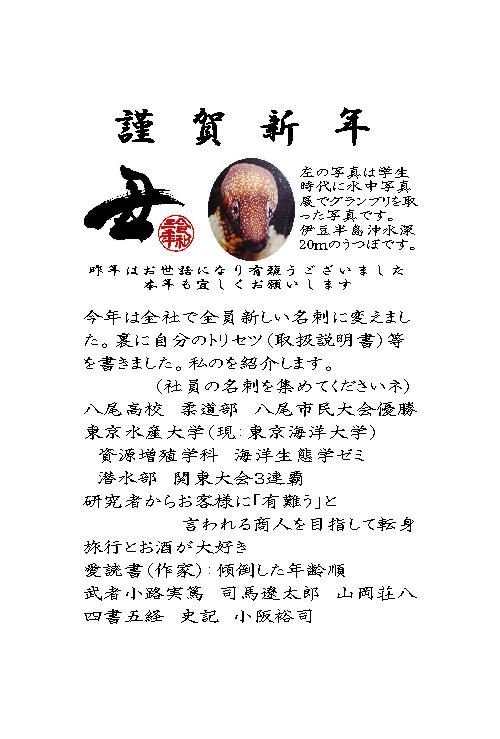 謹賀新年
丑
令和三年
左の写真は学生
時代に水中写真
展でグランプリを取
った写真です。
伊豆半島沖水深
20mのうつぼです。
昨年はお世話になり有難うございました
本年も宜しくお願いします
今年は全社で全員新しい名刺に変えまし
た。裏に自分のトリセツ(取扱説明書)等
を書きました。私のを紹介します。
(社員の名刺を集めてくださいネ)
八尾高校　柔道部　八尾市民大会優勝
東京水産大学(現:東京海洋大学)
資源増殖学科　海洋生態学ゼミ
潜水部　関東大会3連覇
研究者からお客様に「有難う」と
言われる商人を目指して転身
旅行とお酒が大好き
愛読書(作家):傾倒した年齢順
武者小路実篤　司馬遼太郎　山岡荘八
四書五経　史記　小阪裕司